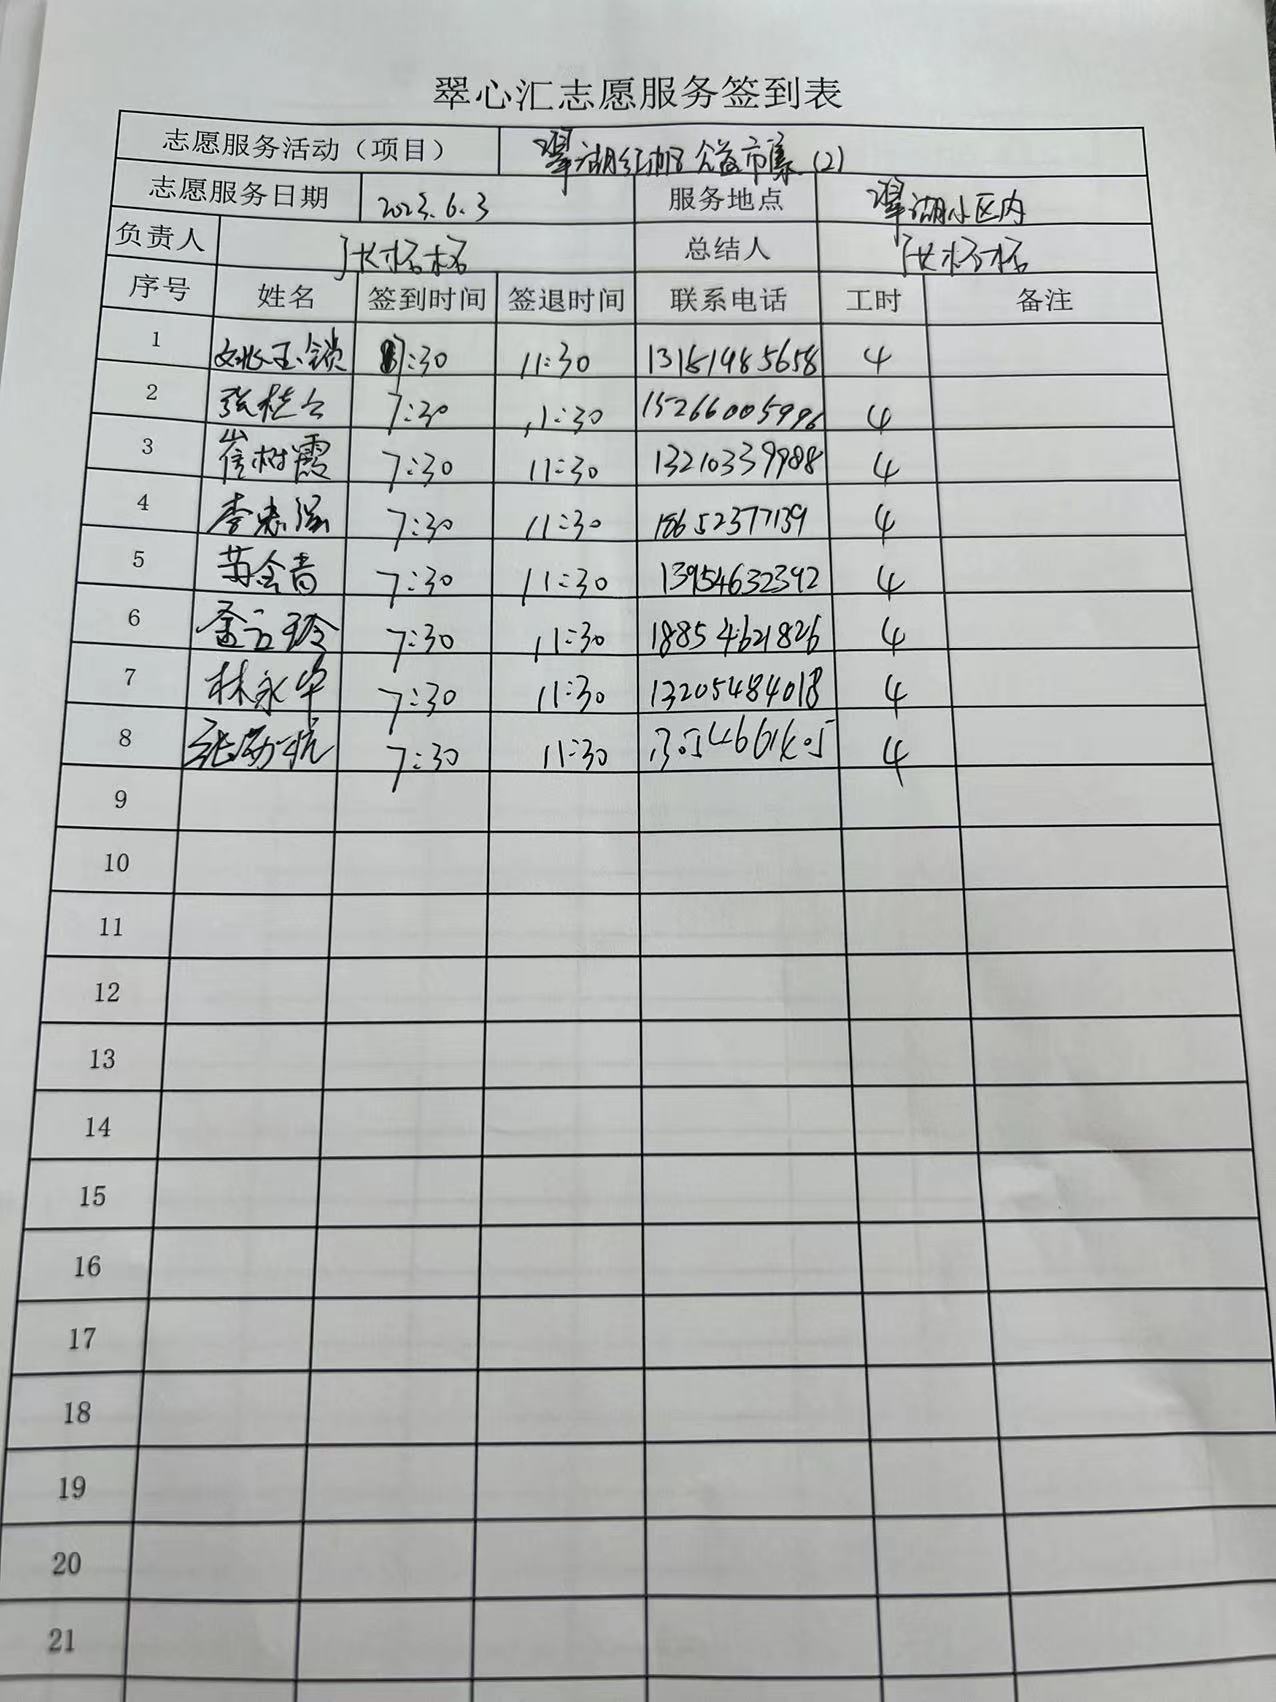 翠心汇志愿服务签到表
志愿服务活动（项目） 翠湖红邻公益市集（2）
志愿服务日期 2023.6.3 服务地点 翠湖小区内
负责人 张杨杨 总结人 张杨杨
序号 姓名 签到时间 签退时间 联系电话 工时 备注
1 姚玉锁 7:30 11:30 13151985658 4
2 张桂云 7:30 11:30 15266005996 4
3 崔树霞 7:30 11:30 13210339988 4
4 李忠强 7:30 11:30 18652377139 4
5 苏会青 7:30 11:30 13954632392 4
6 7:30 11:30 18854621826 4
7 林永华 7:30 11:30 13205484018 4
8 7:30 11:30 4
9
10
11
12
13
14
15
16
17
18
19
20
21